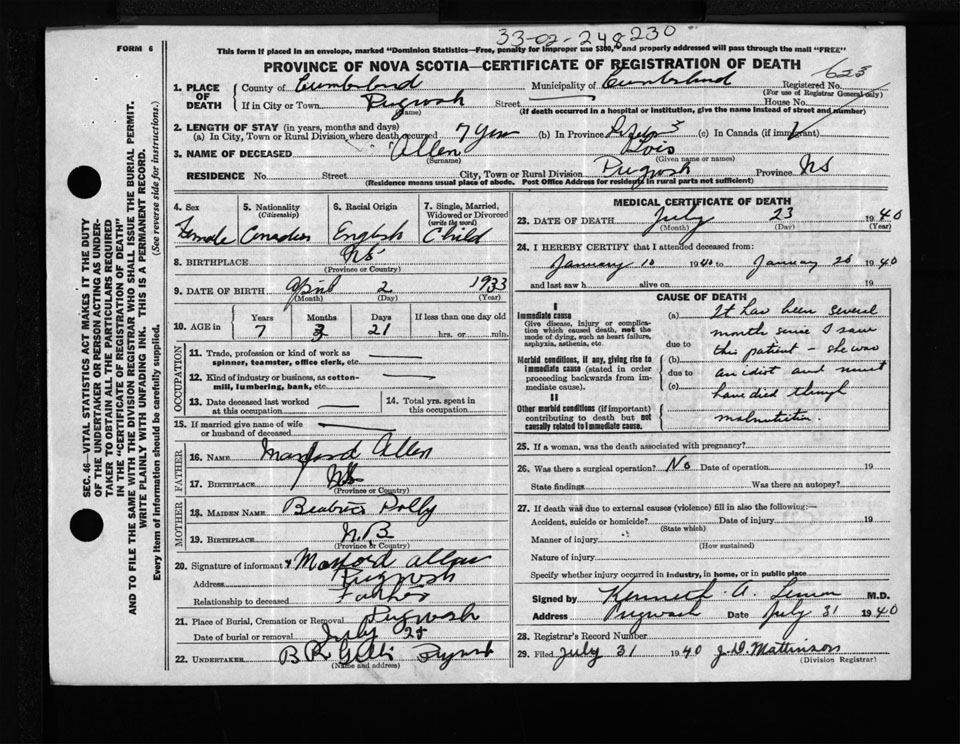 33-02-248230
FORM 6
This form if placed in an envelope, marked "Dominion Statistics—Free, penalty for improper use $300," and properly addressed will pass through the mail "FREE"
PROVINCE OF NOVA SCOTIA—CERTIFICATE OF REGISTRATION OF DEATH
623
1. PLACE OF DEATH
County of Cumberland Municipality of Cumberland Registered No.
(For use of Registrar General only)
If in City or Town Pugwash Street House No.
(Name) (If death occurred in a hospital or institution, give the name instead of street and number)
2. LENGTH OF STAY (in years, months and days)
(a) In City, Town or Rural Division where death occurred 7 yrs (b) In Province (c) In Canada (if immigrant)
3. NAME OF DECEASED Allen Lois
(Surname) (Given name or names)
RESIDENCE No. Street City, Town or Rural Division Pugwash Province NS
(Residence means usual place of abode. Post Office Address for residents in rural parts not sufficient)
SEC. 46—VITAL STATISTICS ACT MAKES IT THE DUTY
OF THE UNDERTAKER OR PERSON ACTING AS UNDER-
TAKER TO OBTAIN ALL THE PARTICULARS REQUIRED
IN THE "CERTIFICATE OF REGISTRATION OF DEATH"
AND TO FILE THE SAME WITH THE DIVISION REGISTRAR WHO SHALL ISSUE THE BURIAL PERMIT.
WRITE PLAINLY WITH UNFADING INK. THIS IS A PERMANENT RECORD.
Every item of information should be carefully supplied. (See reverse side for instructions.)
4. Sex 5. Nationality 6. Racial Origin 7. Single, Married,
(Citizenship) Widowed or Divorced
(write the word)
Female Canadian English Child
8. BIRTHPLACE NS
(Province or Country)
9. DATE OF BIRTH April 2 1933
(Month) (Day) (Year)
10. AGE in Years Months Days If less than one day old
7 3 21 hrs. or min.
OCCUPATION
11. Trade, profession or kind of work as
spinner, teamster, office clerk, etc.
12. Kind of industry or business, as cotton-
mill, lumbering, bank, etc.
13. Date deceased last worked 14. Total yrs. spent in
at this occupation this occupation
15. If married give name of wife
or husband of deceased
FATHER
16. NAME Manford Allen
17. BIRTHPLACE NS
(Province or Country)
MOTHER
18. MAIDEN NAME Beatrice Polly
19. BIRTHPLACE N.B
(Province or Country)
20. Signature of informant Manford Allen
Address Pugwash
Relationship to deceased Father
21. Place of Burial, Cremation or Removal Pugwash
Date of burial or removal July 25
22. UNDERTAKER B R Pugwash
(Name and address)
MEDICAL CERTIFICATE OF DEATH
23. DATE OF DEATH July 23 1940
(Month) (Day) (Year)
24. I HEREBY CERTIFY that I attended deceased from:
January 10 1940 to January 20 1940
and last saw h alive on 19
CAUSE OF DEATH
I
Immediate cause
Give disease, injury or complica-
tion which caused death, not the
mode of dying, such as heart failure,
asphyxia, asthenia, etc.
Morbid conditions, if any, giving rise to
immediate cause (stated in order
proceeding backwards from im-
mediate cause).
II
Other morbid conditions (if important)
contributing to death but not
causally related to immediate cause.
(a) It has been several
months since I saw
due to this patient – she was
(b)
due to an idiot and must
(c) have died through
malnutrition.
25. If a woman, was the death associated with pregnancy?
26. Was there a surgical operation? No Date of operation 19
State findings Was there an autopsy?
27. If death was due to external causes (violence) fill in also the following:—
Accident, suicide or homicide? Date of injury 19
(State which)
Manner of injury
(How sustained)
Nature of injury
Specify whether injury occurred in industry, in home, or in public place
Signed by Kenneth A. M.D.
Address Pugwash Date July 31 1940
28. Registrar's Record Number
29. Filed July 31 1940 J. D. Mattinson
(Division Registrar)